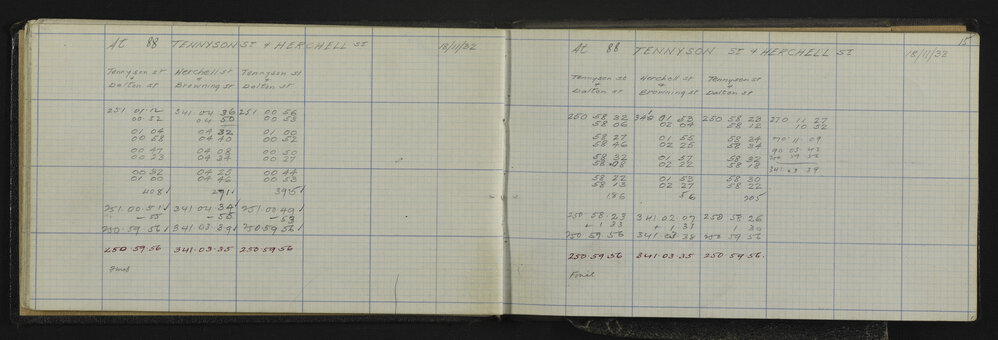 At 88 TENNYSON ST & HERCHELL ST 18/11/32
Tennyson st Herchell st Tennyson st
& & &
Dalton st Browning st Dalton st
251 01 12 341 04 36 251 00 56
00 52 04 50 00 53
01 04 04 32 01 00
00 58 04 40 00 52
00 47 04 08 00 50
00 23 04 34 00 27
00 32 04 25 00 44
01 00 04 46 00 53
408 271 395
251.00.51 341.04.34 251.00.49
- 55 - 55 - 53
250.59.56 341.03.39 250.59.56
250.59.56 341.03.35 250.59.56
Final
15
At 88 TENNYSON ST & HERCHELL ST 18/11/32
Tennyson st Herchell st Tennyson st
& & &
Dalton st Browning st Dalton st
250 58 32 01 53 250 58 23 270 11 27
58 06 02 04 58 12 10 52
58 27 01 55 58 34 70.11.09
58 46 02 25 58 34
58 32 01 57 58 32
58 08 02 22 58 18 341.03 39
58 22 01 53 58 30
58 13 02 27 58 22
186 56 205
250.58.23 341.02.07 250 58 26
+ 1 33 + 1 31 1 30
250 59 56 341.03 38 250 59 56
250.59.56 341.03.35 250.59.56.
Final